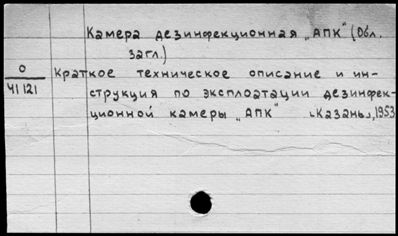 Камера дезинфекционная „АПК" (Обл.
загл.)
О
41121
Краткое техническое описание и ин-
струкция по эксплоатации дезинфек-
ционной камеры „АПК" «Казань», 1953